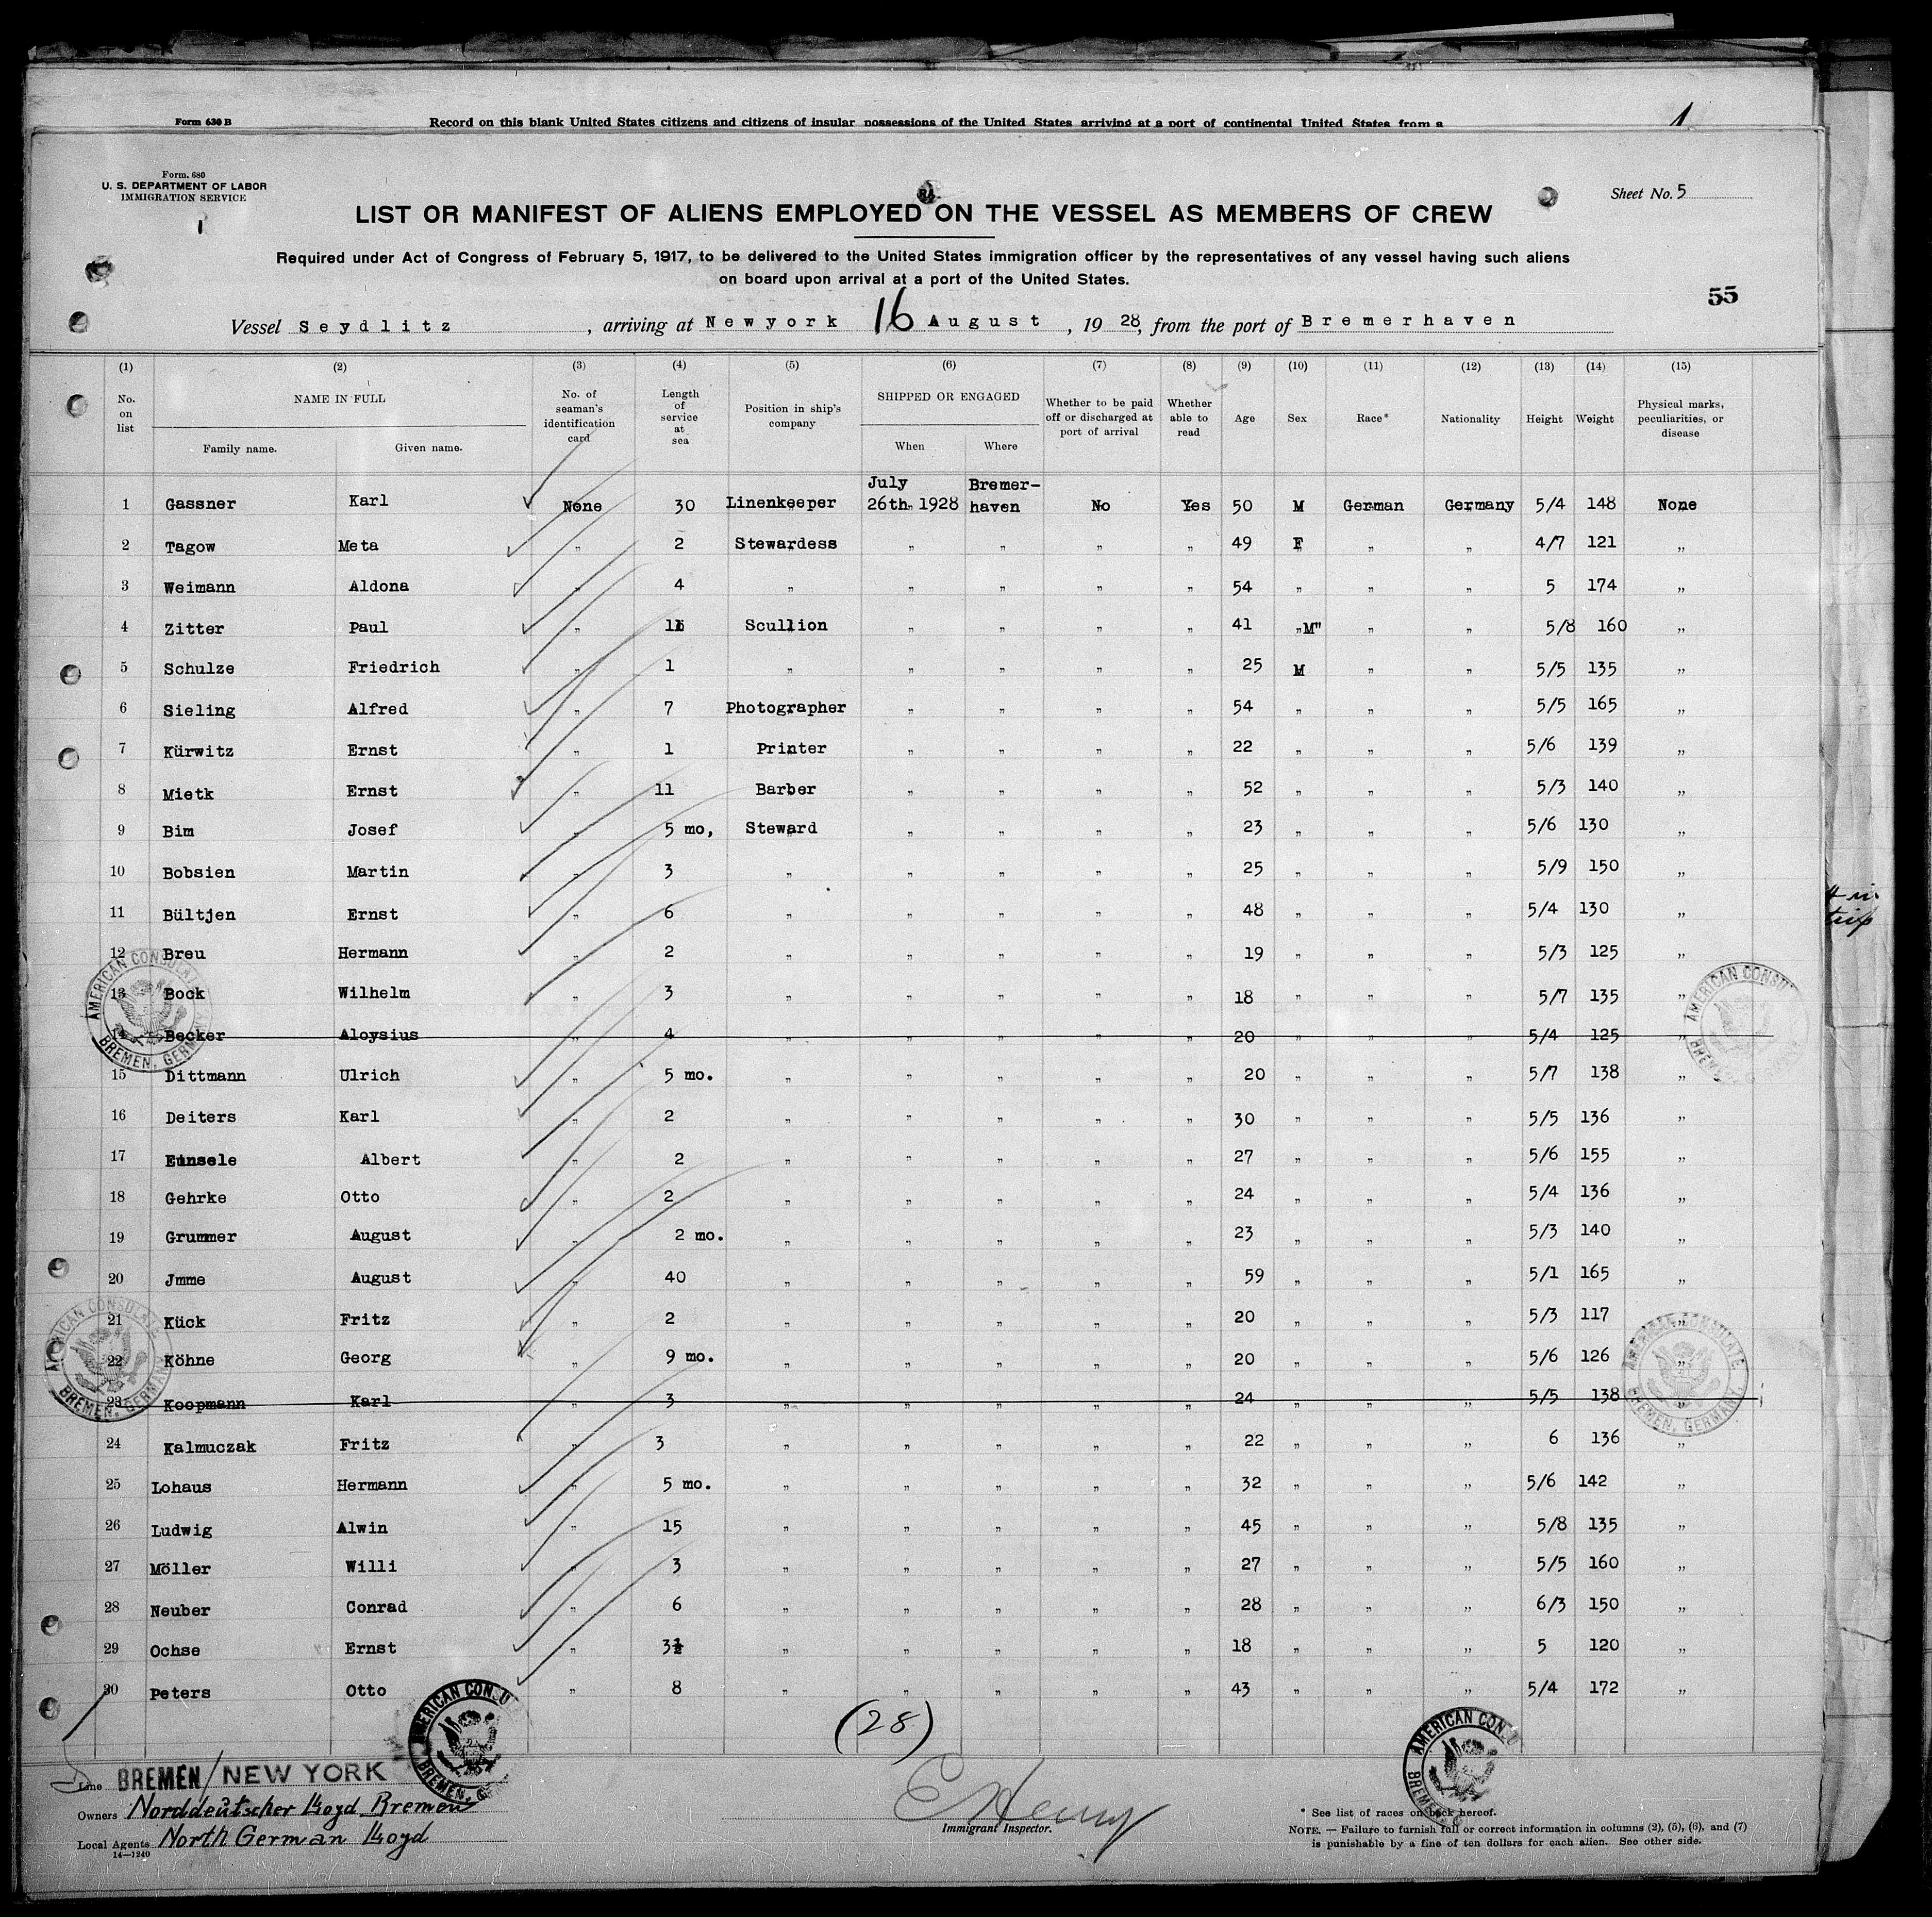 Form 630 B
Record on this blank United States citizens and citizens of insular possessions of the United States arriving at a port of continental United States from a
Form. 680
U. S. DEPARTMENT OF LABOR
IMMIGRATION SERVICE
1
Sheet No. 5
LIST OR MANIFEST OF ALIENS EMPLOYED ON THE VESSEL AS MEMBERS OF CREW
Required under Act of Congress of February 5, 1917, to be delivered to the United States immigration officer by the representatives of any vessel having such aliens
on board upon arrival at a port of the United States.
55
Vessel Seydlitz, arriving at Newyork 16 August, 1928, from the port of Bremerhaven
(1) (2) (3) (4) (5) (6) (7) (8) (9) (10) (11) (12) (13) (14) (15)
No. on list NAME IN FULL Family name. Given name. No. of seaman's identification card Length of service at sea Position in ship's company SHIPPED OR ENGAGED When Where Whether to be paid off or discharged at port of arrival Whether able to read Age Sex Race* Nationality Height Weight Physical marks, peculiarities, or disease
1 Gassner Karl None 30 Linenkeeper July 26th. 1928 Bremer-haven No Yes 50 M German Germany 5/4 148 None
2 Tagow Meta " 2 Stewardess " " " " 49 F " " 4/7 121 "
3 Weimann Aldona " 4 " " " " " 54 " " " 5 174 "
4 Zitter Paul " 16 Scullion " " " " 41 "M" " " 5/8 160 "
5 Schulze Friedrich " 1 " " " " " 25 M " " 5/5 135 "
6 Sieling Alfred " 7 Photographer " " " " 54 " " " 5/5 165 "
7 Kürwitz Ernst " 1 Printer " " " " 22 " " " 5/6 139 "
8 Mietk Ernst " 11 Barber " " " " 52 " " " 5/3 140 "
9 Bim Josef " 5 mo, Steward " " " " 23 " " " 5/6 130 "
10 Bobsien Martin " 3 " " " " " 25 " " " 5/9 150 "
11 Bültjen Ernst " 6 " " " " " 48 " " " 5/4 130 "
12 Breu Hermann " 2 " " " " " 19 " " " 5/3 125 "
13 Bock Wilhelm " 3 " " " " " 18 " " " 5/7 135 "
14 Becker Aloysius " 4 " " " " " 20 " " " 5/4 125 "
15 Dittmann Ulrich " 5 mo. " " " " " 20 " " " 5/7 138 "
16 Deiters Karl " 2 " " " " " 30 " " " 5/5 136 "
17 Einsele Albert " 2 " " " " " 27 " " " 5/6 155 "
18 Gehrke Otto " 2 " " " " " 24 " " " 5/4 136 "
19 Grummer August " 2 mo. " " " " " 23 " " " 5/3 140 "
20 Jmme August " 40 " " " " " 59 " " " 5/1 165 "
21 Kück Fritz " 2 " " " " " 20 " " " 5/3 117 "
22 Köhne Georg " 9 mo. " " " " " 20 " " " 5/6 126 "
23 Koopmann Karl " 3 " " " " " 24 " " " 5/5 138 "
24 Kalmuczak Fritz " 3 " " " " " 22 " " " 6 136 "
25 Lohaus Hermann " 5 mo. " " " " " 32 " " " 5/6 142 "
26 Ludwig Alwin " 15 " " " " " 45 " " " 5/8 135 "
27 Möller Willi " 3 " " " " " 27 " " " 5/5 160 "
28 Neuber Conrad " 6 " " " " " 28 " " " 6/3 150 "
29 Ochse Ernst " 3½ " " " " " 18 " " " 5 120 "
30 Peters Otto " 8 " " " " " 43 " " " 5/4 172 "
AMERICAN CONSULATE BREMEN, GERMANY
AMERICAN CONSULATE BREMEN, GERMANY
AMERICAN CONSULATE BREMEN, GERMANY
(28)
Line BREMEN/NEW YORK
Owners Norddeutscher Lloyd Bremen
Local Agents North German Lloyd
14—1240
E Henry
Immigrant Inspector.
* See list of races on back hereof.
NOTE. — Failure to furnish full or correct information in columns (2), (5), (6), and (7)
is punishable by a fine of ten dollars for each alien. See other side.